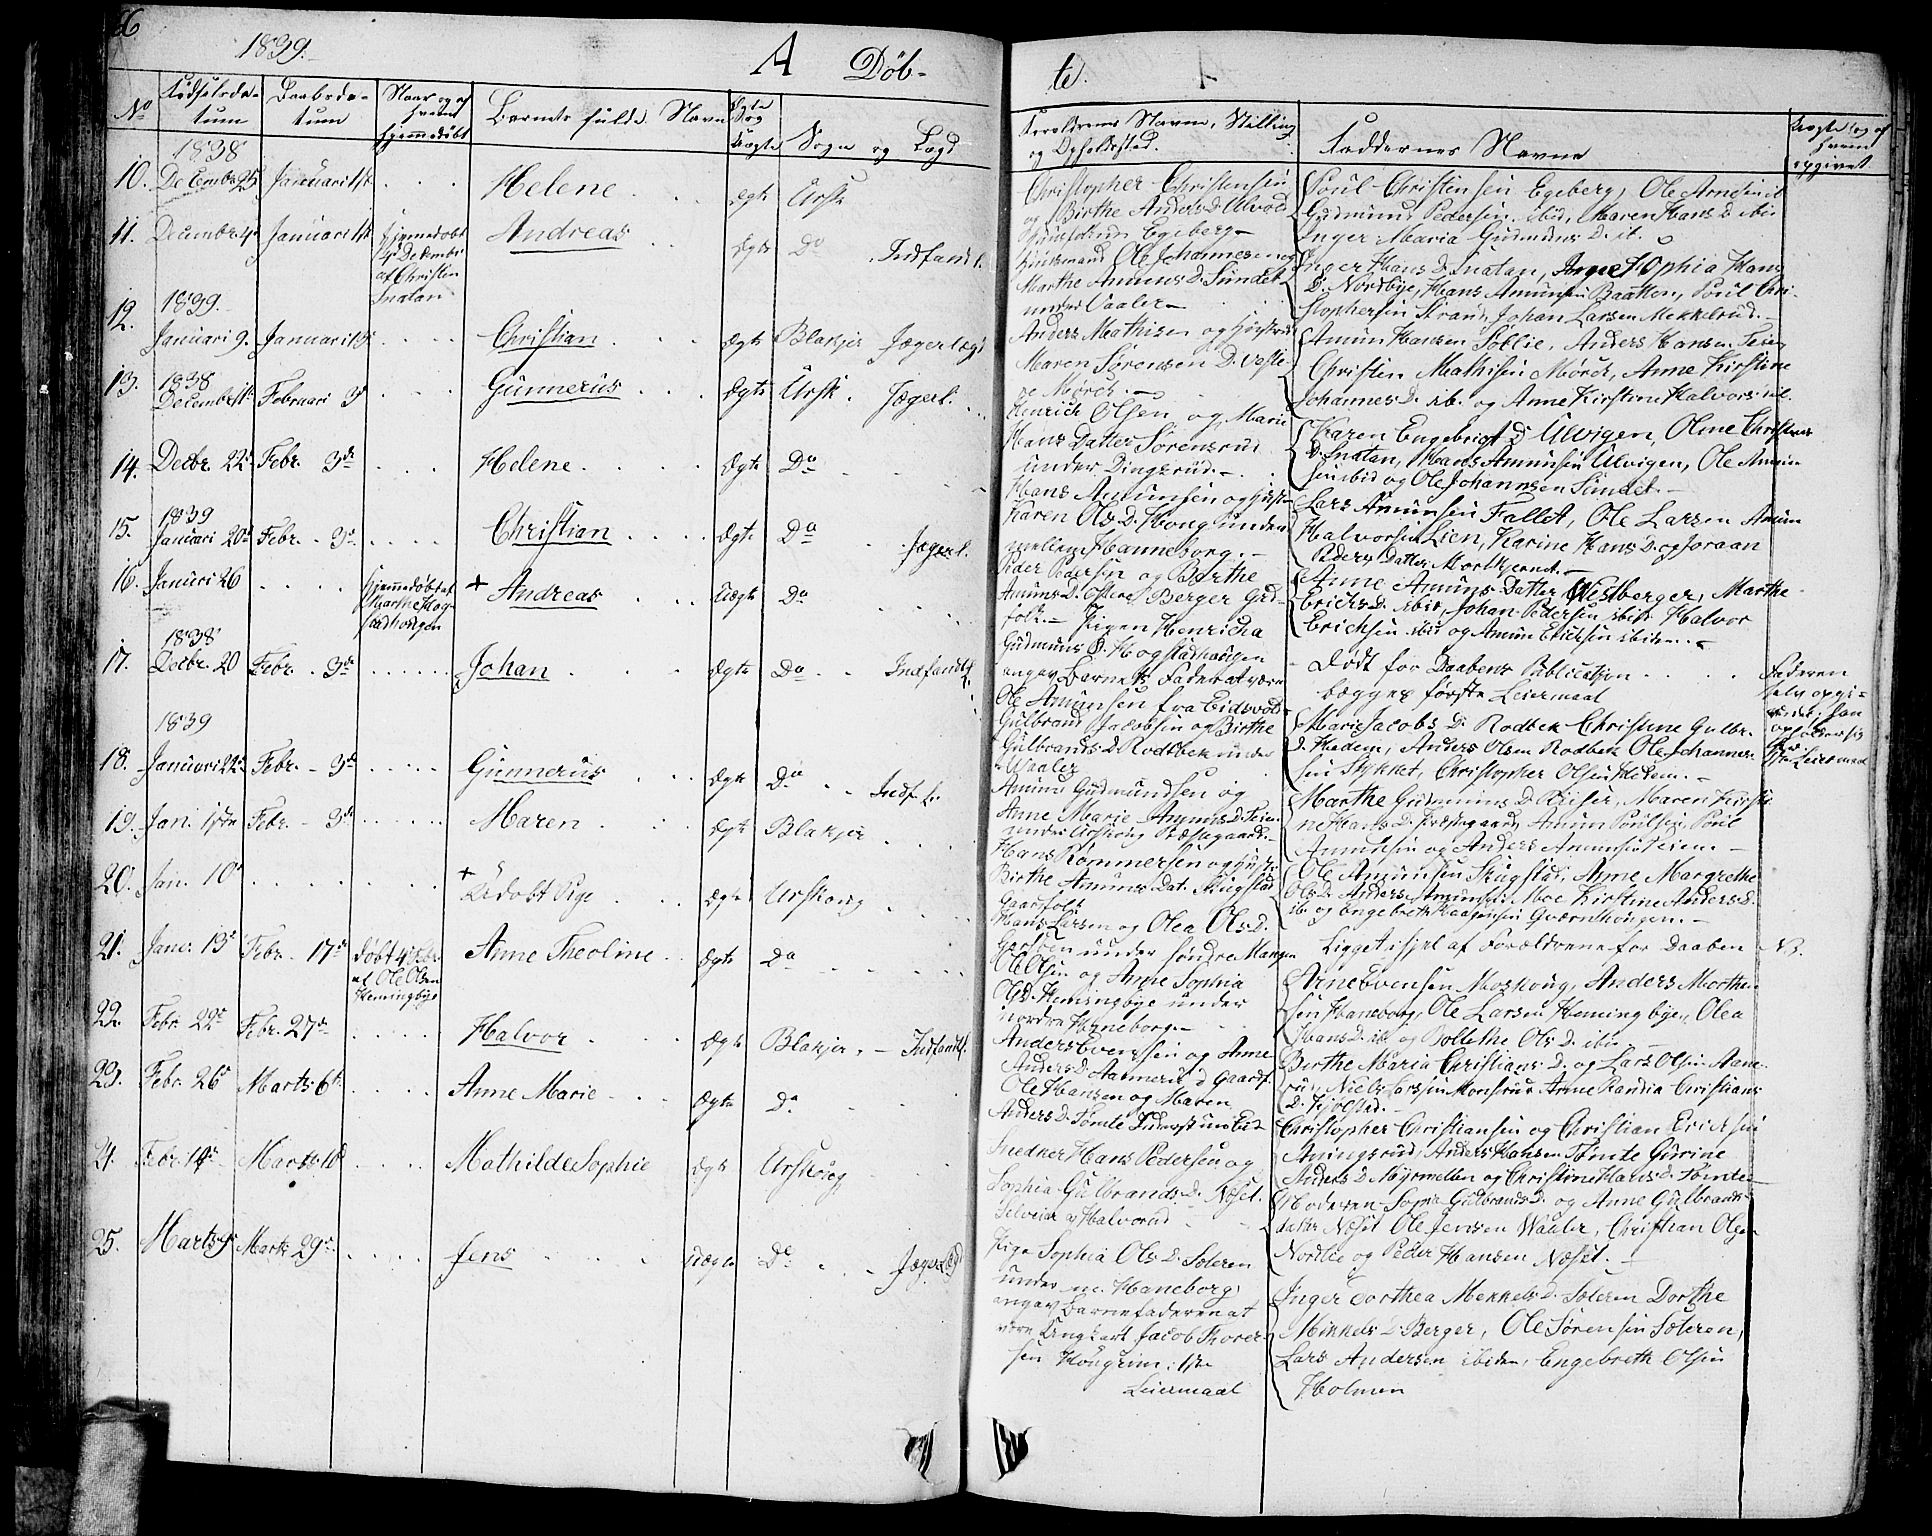 66
1839.
A Døb-
te.
No
Fødselsda-
tum
Daabsda-
tum
Naar og af
hvem
hjemmedøbt
Barnets fulde Navn
Ægte
Sogn og Lægd
Forældrenes Navne, Stilling
og Opholdssted.
Faddernes Navne
1838
10. December 25 Januari 1ste Helene ægte Ursk
Christopher Christensen
og Birthe Anders D. Ulvod
Huusfolk under Egeberg
Poul Christensen Egeberg, Ole Arnesen ib
Gudmund Pedersen ibid, Maren Hans D. ibid
Inger Maria Gudmuns D. ib.
11. December 4 Januari 1ste hjemmedøbt
December
af Christen
Inatan
Andreas Ægte Do Indfandtl.
Huusmand Ole Johannesen og
Marthe Amuns D. Sundet
under Vaaler
Inger Hans D. Inatan, Anne Sophia Hans
D. Nordbye, Hans Amunsen Baatten, Poul Chri-
stophersen Strand, Johan Larsen Mekkelrud.
1839.
12. Januari 9. Januari Christian Ægte Blakjer Jægerlægd
Anders Mathisen og hustru
Maren Sørensen D. Vestre
Mørck.
Amun Hansen Soblie, Anders Hansen Teien
Christen Mathisen Mørck, Anne Kirstine
Johannes D. ib. og Anne Kirstine Halvors ib.
1838
13. December Februari 3 Gunnerus Ægte Ursk. Jægerl.
Hinrich Olsen og Marie
Hans Datter Sørensrud
under Dingsrud.
Karen Engebrigt D Ulvigen, Oline Christens
D. Inatan, Hans Amunsen Ulvigen, Ole Amun-
sen ibid og Ole Johannsen Sundet.
14. Decbr. 22 Febr. 3de Helene Ægte Do
Hans Amunsen og hustru
Karen Ols D. Houg under
mellem Hanneborg.
Lars Amunsen Fallet, Ole Larsen Amun
Halvorsen Lien, Karine Hans D. og Joraan
Peders Datter
1839
15. Januari 20 Febr. 3de Christian Ægte Do Jægerl.
Peder Pedersen og Berthe
Amuns D. Østre Berger Grd-
folk.
Anne Amuns Datter Westberger, Marthe
Erichs D. ibid, Johan Pedersen ibid Halvor
Erichsen ibid og Amun Erichsen ibidem.
16. Januri 26 hjemmedøbt af
Marthe Hog-
stadhougen
+ Andreas Uægte Do
Pigen Henricha
Gudmuns D. Hogstadhaugen
angav Barnets Fader at være
Ole Amunsen fra Eidsvold
Dødt for Daabens Publication
begges første Leiermaal
Faderen
selv opgi-
1838
17. Decbr. 20 Febr. 3de Johan Ægte Do Indfandtl.
Gulbrand Jacobsen og Birthe
Gulbrands D. Rodbek under
Waaler
Marie Jacobs D. Rodbek Christine Gulbr.
D. Hedem, Anders Olsen Rodbek Ole Johannes-
sen Stykket, Christopher Olsen Hedem.
1839
18. Januari 22 Febr. 3de Gunnerus Ægte Do Indf. L.
Amund Gudmundsen og
Anne Marie Amuns D. Teien
under Urskoug Præstegaard.
Marthe Gudmuns D. Reiser, Maren Kirsti-
ne Hans D. Præstegaard, Amun Poulsen, Poul
Amunsen og Anders Amunsen Teien.
19. Jan. 1ste Febr. 3de Maren Ægte Blakjer
Hans Rommersen og hustr.
Birthe Amuns Dat. Skugstad
Gaardfolk
Ole Amunsen Skugstad, Anne Margrethe
Ols D. Anders Amunsen Moe Kirstine Anders D.
ib. og Engebreth Haagensen Qværnhougen.
20. Jan. 10 + Udøbt Pige Ægte Urskoug
Hans Larsen og Olea Ols D.
under søndre Mangen
Ligget ihjel af Forældrene for Daaben NB.
21. Janr. 13 Febr. 17de døbt 4 Febr.
af Ole Olsen
Hemingbye
Anne Theoline Ægte Do
Ole Olsen og Anne Sophia
Ols D. Hemingbye under
nordre Haneborg
Arne Evensen Moskoug, Anders Morthen-
sen Haneborg, Ole Larsen Hemingbye, Olea
Hans D. ib. og Bollethe Ols D. ibid
22. Febr. 22 Febr. 27de Halvor Ægte Blakjer. Indfandtl.
Anders Evensen og Anne
Anders D. Aamerud Gaardf.
Birthe Maria Christians D. og Lars Olsen Aame-
rud, Niels Larsen Monsrud Anne Randia Christians
D. Kjølstad.
23. Febr. 26 Marts 6te Anne Marie Ægte Do
Ole Hansen og Maren
Anders D. Tomte
Christopher Christiansen og Christian Ericksen
Aningsrud, Anders Hansen Tomte Gurine
Anders D. Myrmellen og Christine Hans D. Tomte
24. Febr. Marts Mathilde Sophie Ægte Urskoug
Snedker Hans Pedersen og
Sophia Gulbrands D. Næset.
Selveier af Halvorud
Moderen Sopr. Gulbrands D. og Anne Gulbrands-
datter Næset Ole Jensen Waaler, Christian Olsen
Nordlie og Peder Hansen Næset.
25. Marts Marts 29de Jens uægte Do Jægerlægd
Pige Sophia Ols D. Soteren
under m. Haneborg
angav Barnefaderen at
være Ungkarl Jacob Thorer-
sen Hougrim. 1ste
Leiermaal
Inger Dorthea Mekkels D. Soteren Dorthe
Mikkels D. Berger, Ole Sørensen Soteren,
Lars Andersen ibidem, Engebreth Olsen
Holmen